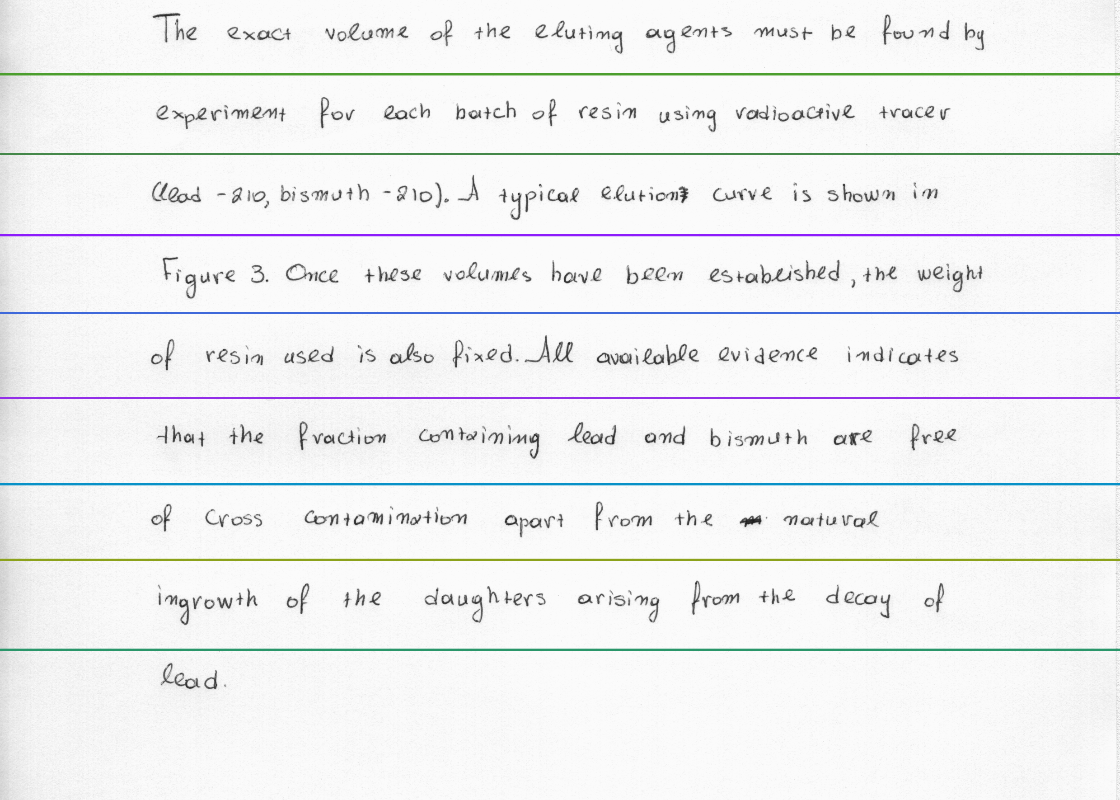 The exact volume of the eluting agents must be found by
experiment for each batch of resin using radioactive tracer
(lead -210, bismuth -210). A typical elution curve is shown in
Figure 3. Once these volumes have been established, the weight
of resin used is also fixed. All available evidence indicates
that the fraction containing lead and bismuth are free
of cross contamination apart from the natural
ingrowth of the daughters arising from the decay of
lead.